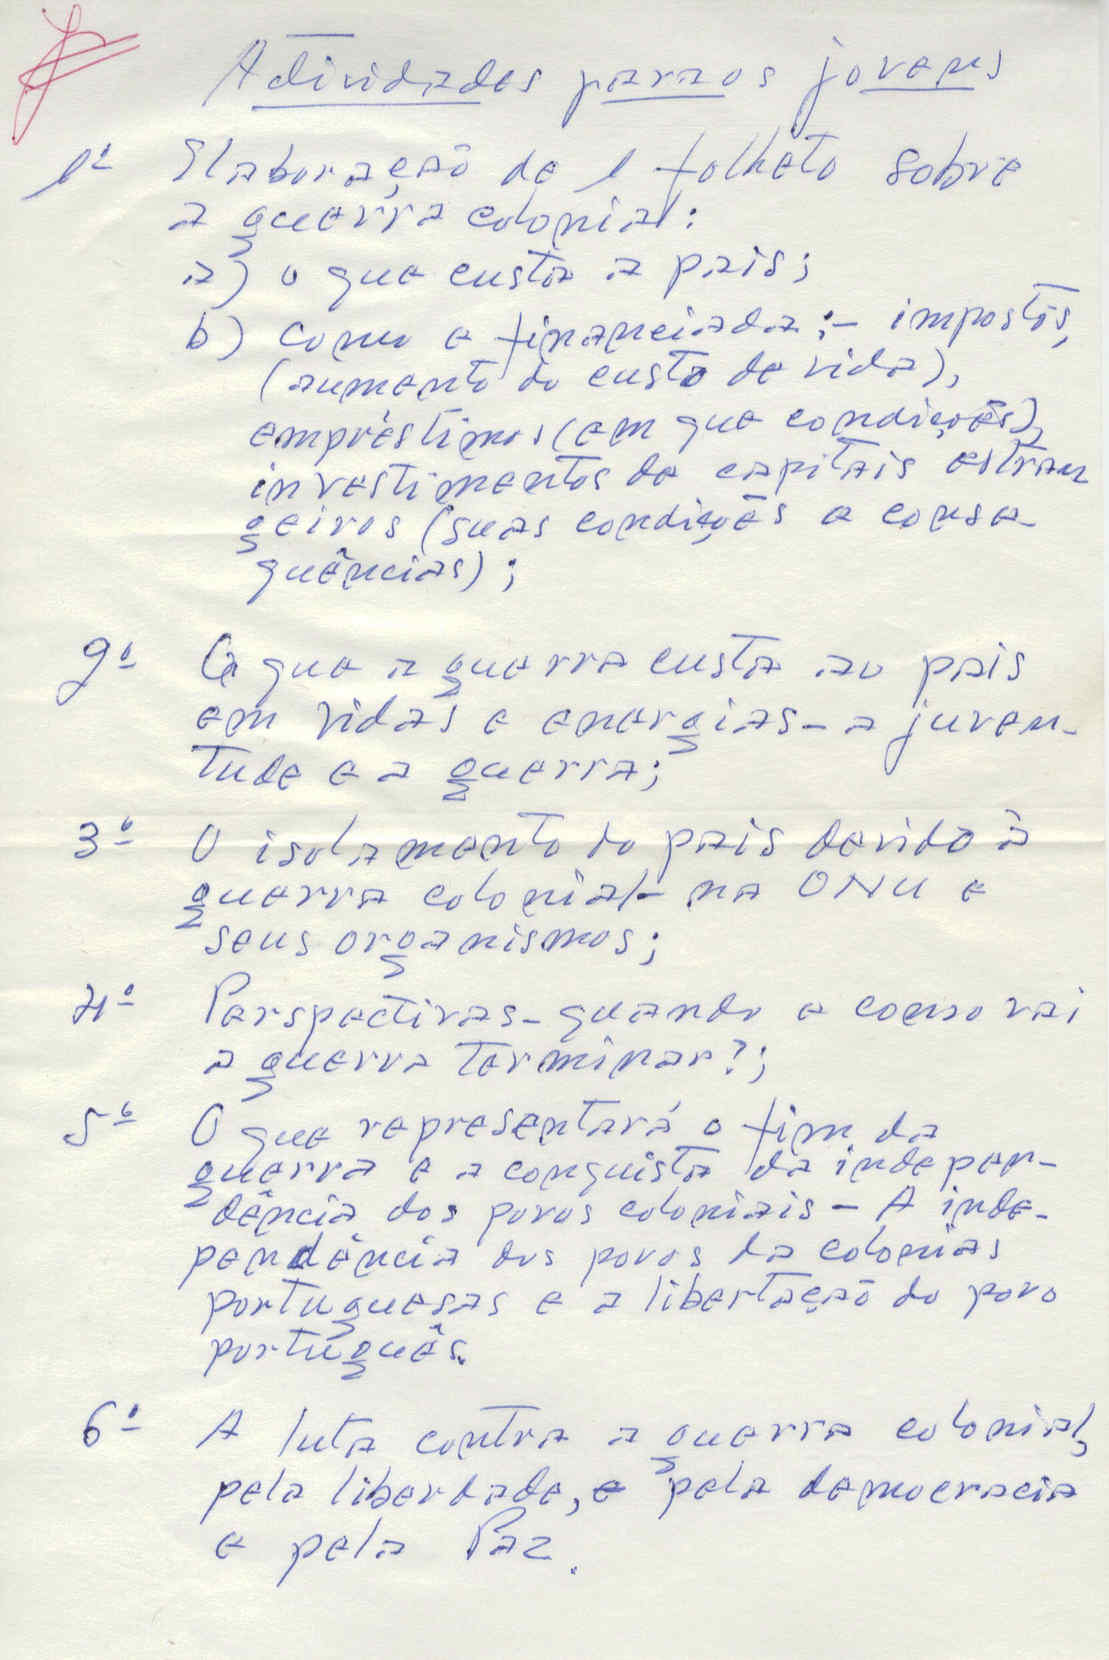 Actividades para os jovens
1º Elaboração de 1 folheto sobre
a guerra colonial:
a) o que custa a pais;
b) como e financiada:- impostos,
(aumento do custo de vida),
empréstimos (em que condições),
investimentos de capitais estran
geiros (suas condições e conse-
quências);
2º O que a guerra custa ao pais
em vidas e energias - a juven-
tude e a guerra;
3º O isolamento do pais devido à
guerra colonial - na ONU e
seus organismos;
4º Perspectivas - quando e como vai
a guerra terminar?;
5º O que representará o fim da
guerra e a conquista da indepen-
dência dos povos coloniais - A inde-
pendência dos povos da colonias
portuguesas e a libertação do povo
português.
6º A luta contra a guerra colonial,
pela liberdade, e pela democracia
e pela Paz.